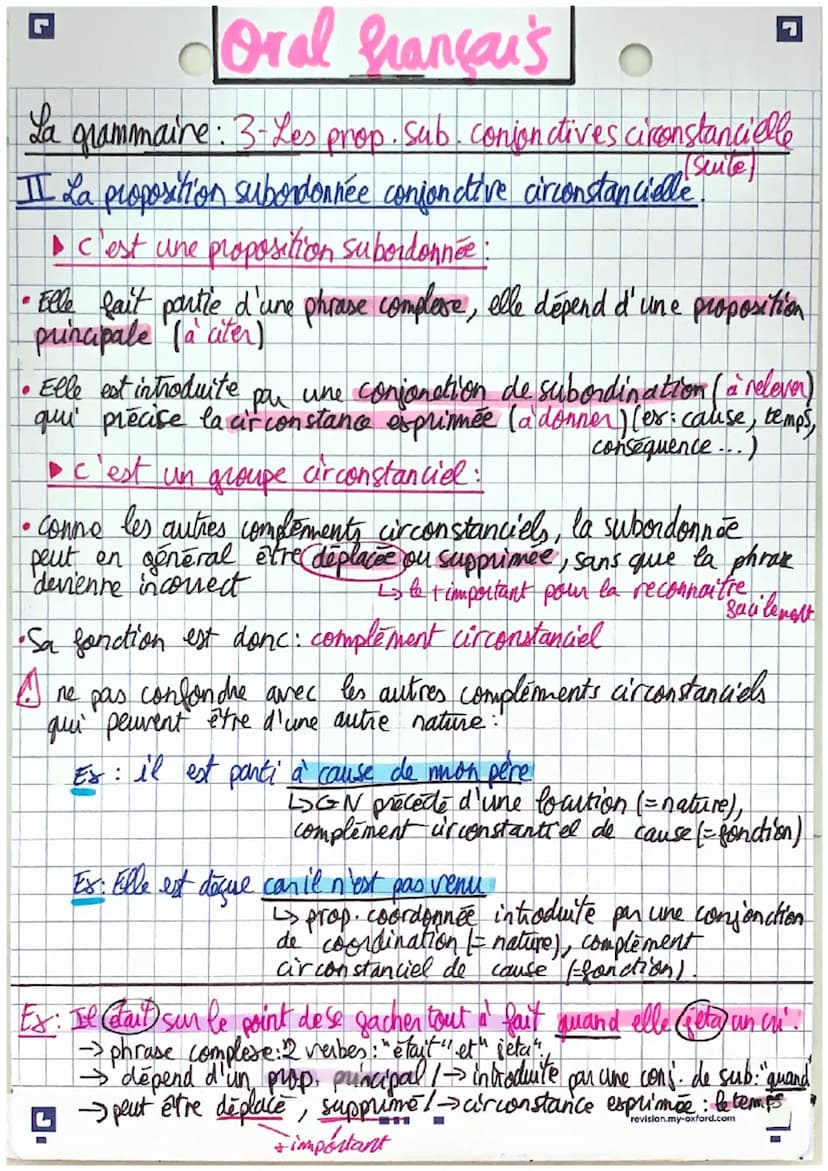 Oral français
La grammaire : 3-Les prop. sub. conjonctives circonstancielle
(suite)
II La proposition subordonnée conjonctive circonstancielle.
▸ c'est une proposition subordonnée :
• Elle fait partie d'une phrase complexe, elle dépend d'une proposition
principale (à citer)
• Elle est introduite par une conjonction de subordination (à relever)
qui précise la circonstance exprimée (à donner) (ex : cause, temps,
conséquence ...)
▸ c'est un groupe circonstanciel :
• Comme les autres compléments circonstanciels, la subordonnée
peut en général être déplacée ou supprimée, sans que la phrase
devienne incorrect
↳ le + important pour la reconnaitre
facilement
• Sa fonction est donc : complément circonstanciel
⚠ ne pas confondre avec les autres compléments circonstanciels
qui peuvent être d'une autre nature :
Ex : il est parti à cause de mon père
↳ GN précédé d'une locution (= nature),
complément circonstantiel de cause (= fonction)
Ex : Elle est déçue car il n'est pas venu
↳ prop. coordonnée introduite par une conjonction
de coordination (= nature), complément
circonstanciel de cause (= fonction).
Ex : Il était sur le point de se gacher tout à fait quand elle jeta un cri.
→ phrase complexe : 2 verbes : "était" et "jeta".
→ dépend d'un prop. principal / → introduite par une conj. de sub : "quand"
→ peut être déplacé, supprimé / → circonstance exprimée : le temps
revision.my-oxford.com
+ important